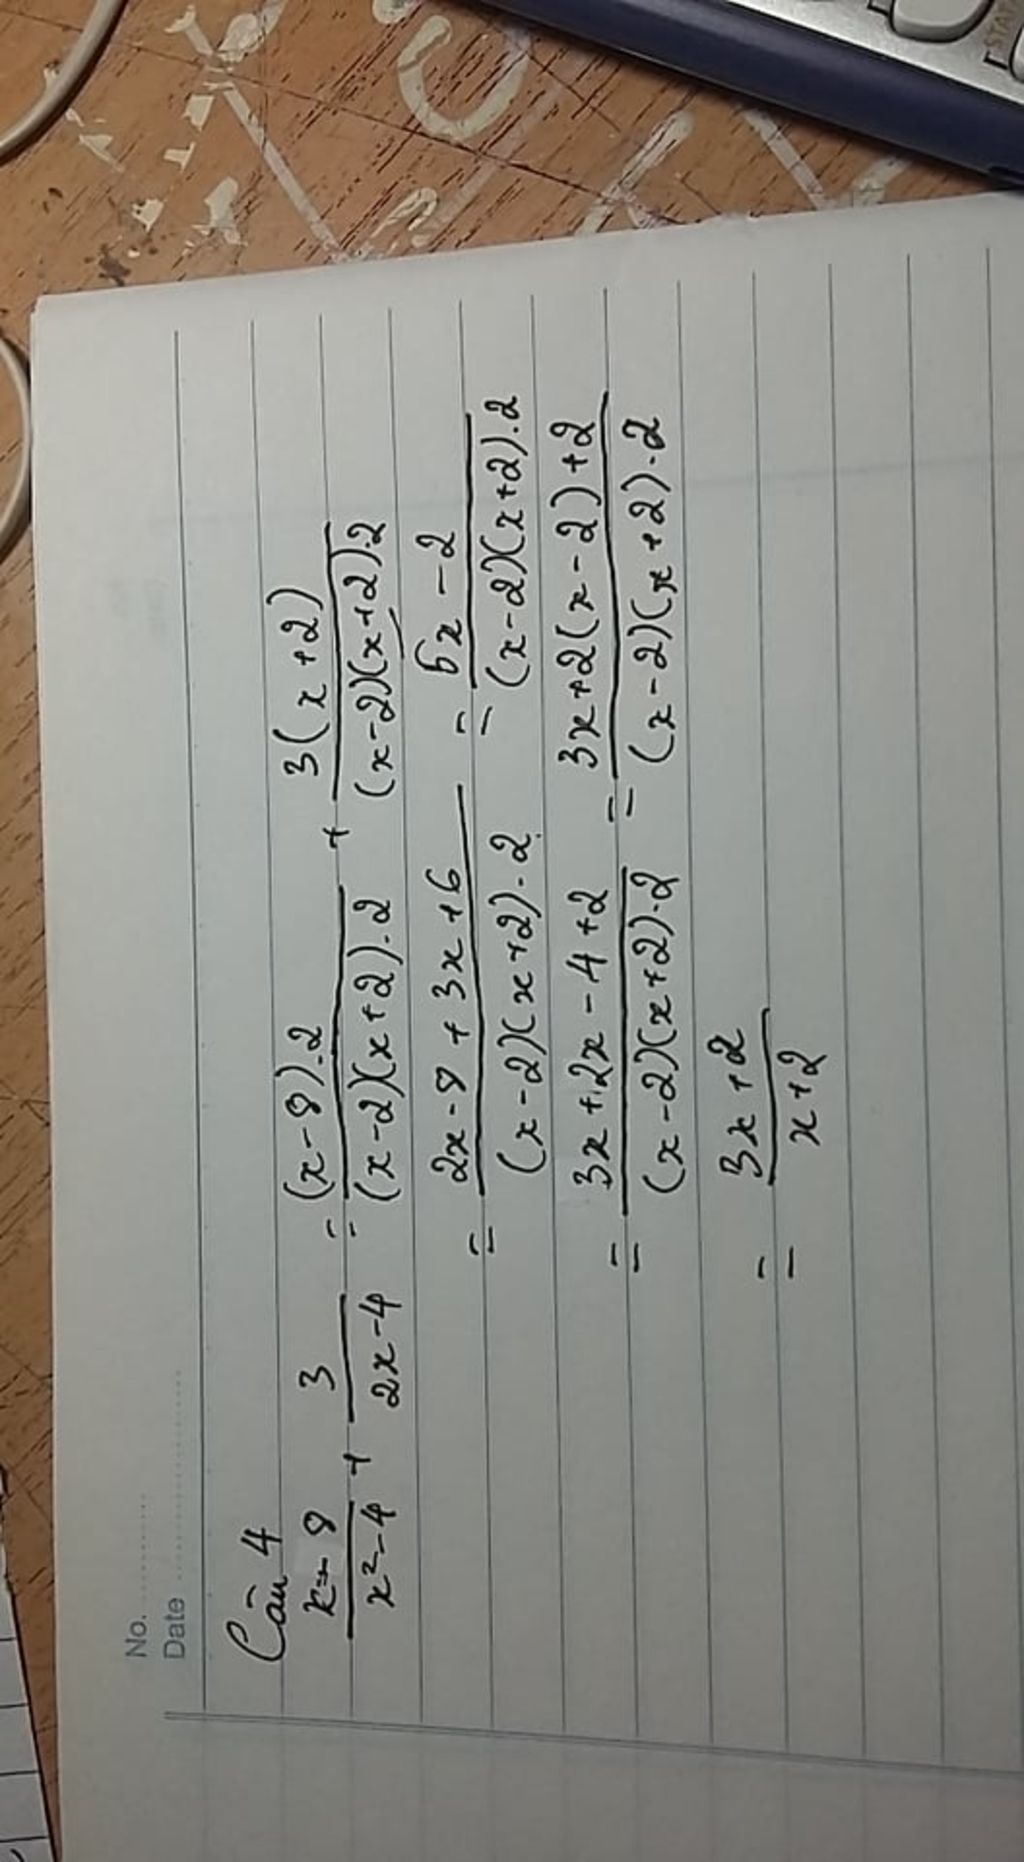 No. ............
Date ........................
Câu 4
x - 8 / x² - 4 + 3 / 2x - 4 = (x - 8).2 / (x - 2)(x + 2).2 + 3(x + 2) / (x - 2)(x + 2).2
= 2x - 8 + 3x + 6 / (x - 2)(x + 2).2 = 5x - 2 / (x - 2)(x + 2).2
= 3x + 2x - 4 + 2 / (x - 2)(x + 2).2 = 3x + 2(x - 2) + 2 / (x - 2)(x + 2).2
= 3x + 2 / x + 2